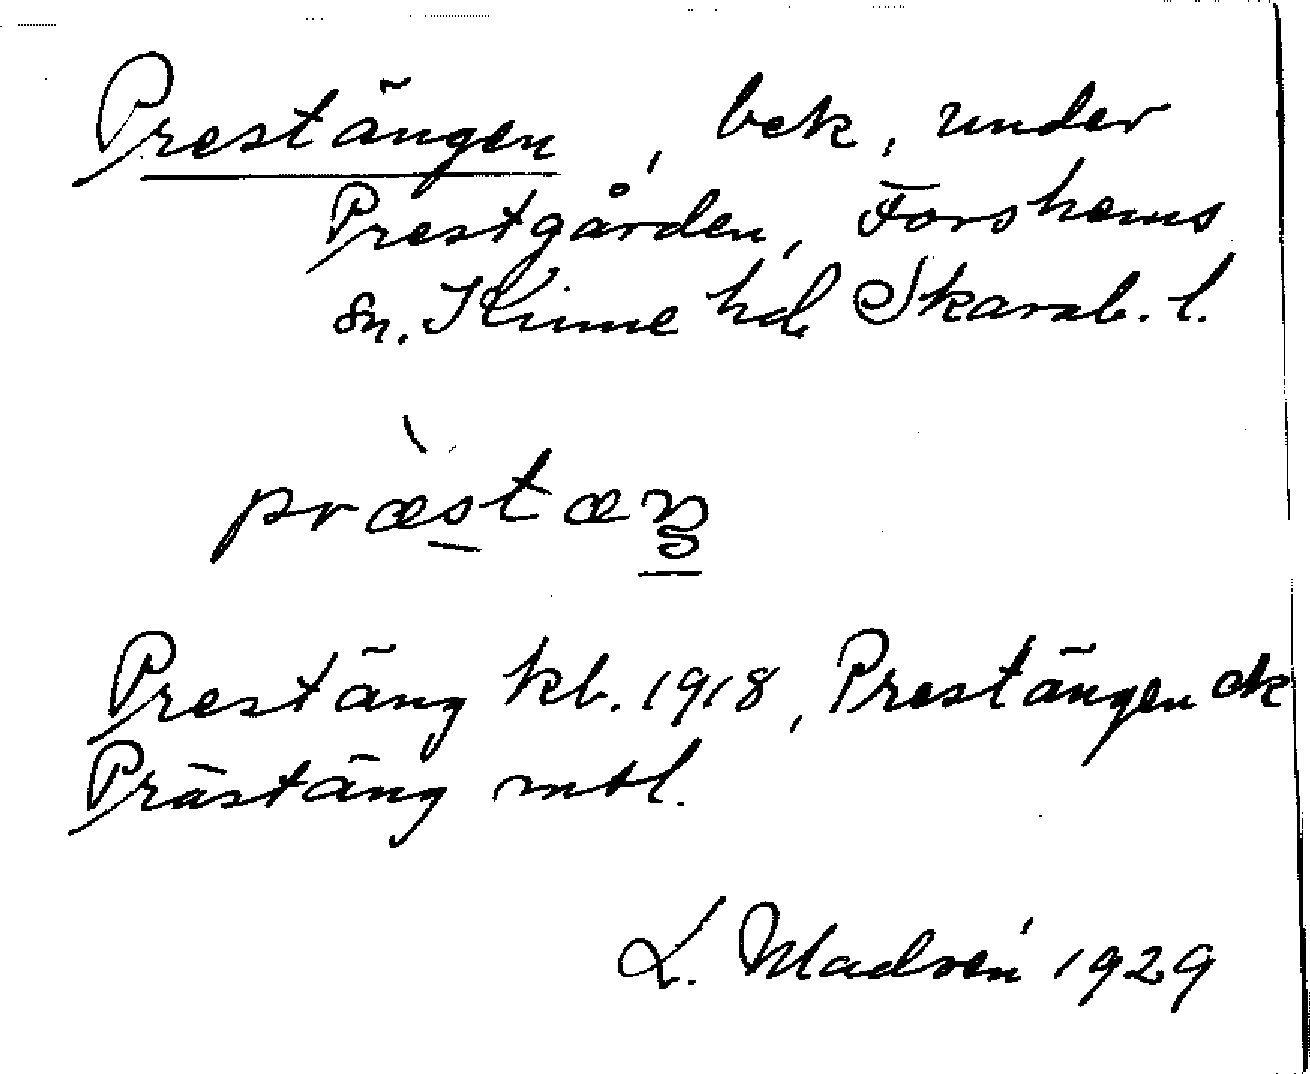 Prestängen, bek, under
Prestgården, Forshems
sn. Kinne hd Skarab. l.
prӕ̀stӕŋ
Prestäng kb. 1918, Prestängen ok
Prästäng mtl.
L. Madvén 1929